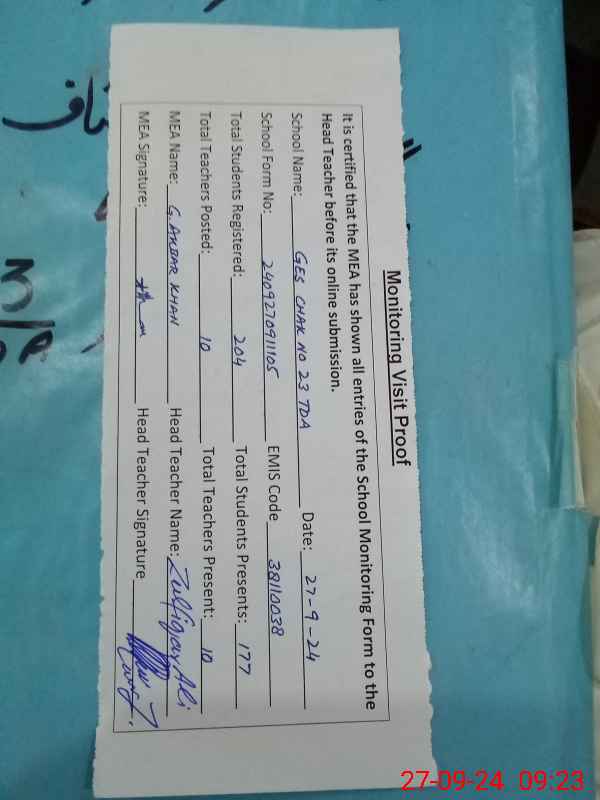 Monitoring Visit Proof
It is certified that the MEA has shown all entries of the School Monitoring Form to the
Head Teacher before its online submission.
School Name: GES CHAK NO 23 TDA Date: 27-9-24
School Form No: 2409270911105 EMIS Code 38110038
Total Students Registered: 204 Total Students Presents: 177
Total Teachers Posted: 10 Total Teachers Present: 10
MEA Name: G. AKBAR KHAN Head Teacher Name: Zulfiqar Ali
MEA Signature: Head Teacher Signature
27-09-24 09:23